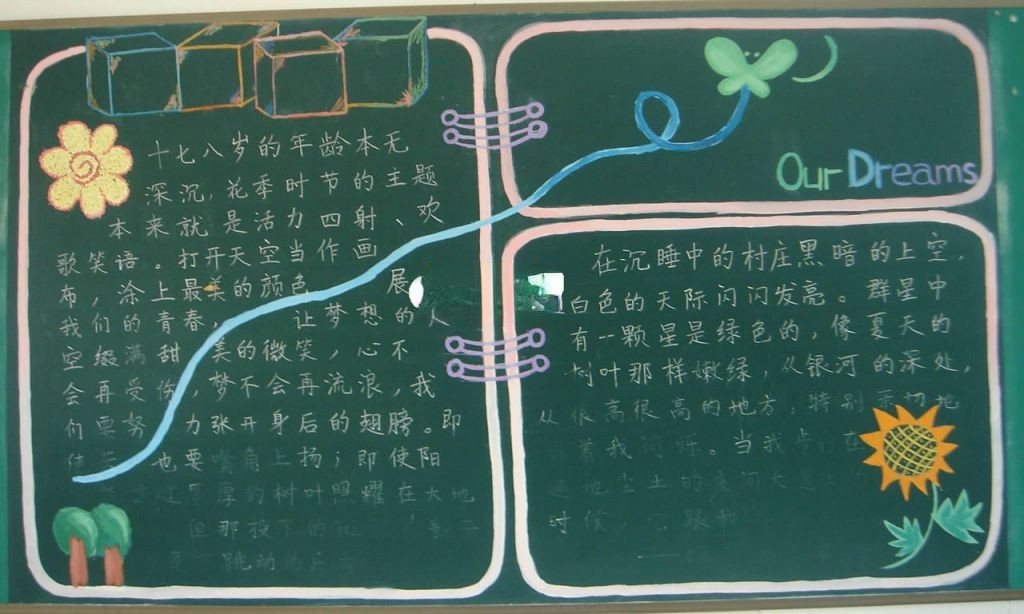 十七八岁的年龄本无
深沉,花季时节的主题
本来就是活力四射、欢
歌笑语。打开天空当作画
布,涂上最美的颜色 展
我们的青春, 让梦想的
空缀满甜美的微笑,心不
会再受伤,梦不会再流浪,我
们要努力张开身后的翅膀。即
使 也要嘴角上扬;即使阳
厚的树叶照耀在大地
但那投下的
跳动的
Our Dreams
在沉睡中的村庄黑暗的上空,
白色的天际闪闪发亮。群星中
有一颗星是绿色的,像夏天的
树叶那样嫩绿,从银河的深处,
从很高很高的地方;特别 地
着我 。当我
地 土的 间大
时候,它跟我